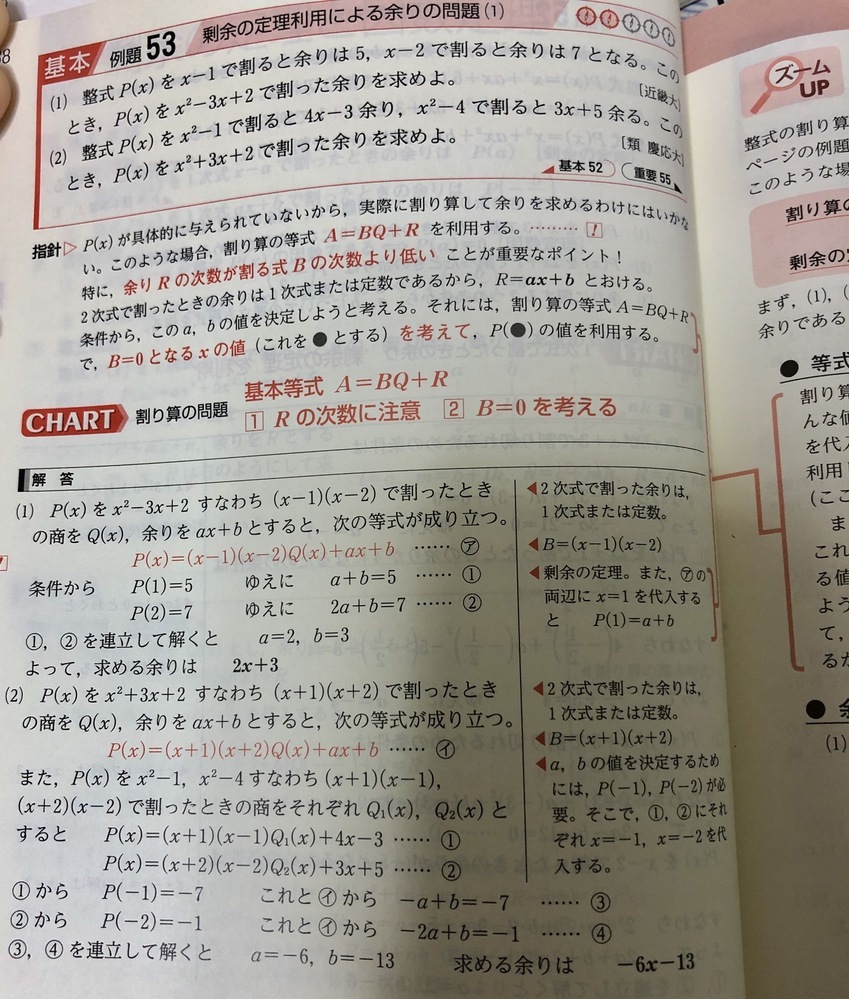 基本 例題 53 剰余の定理利用による余りの問題 (1)
(1) 整式 P(x) を x−1 で割ると余りは 5，x−2 で割ると余りは 7 となる。この
とき，P(x) を x²−3x+2 で割った余りを求めよ。 [近畿大]
(2) 整式 P(x) を x²−1 で割ると 4x−3 余り，x²−4 で割ると 3x+5 余る。この
とき，P(x) を x²+3x+2 で割った余りを求めよ。 [類 慶応大]
基本 52 重要 55
指針▷ P(x) が具体的に与えられていないから，実際に割り算して余りを求めるわけにはいかな
い。このような場合，割り算の等式 A=BQ+R を利用する。……… !
特に，余り R の次数が割る式 B の次数より低い ことが重要なポイント！
2 次式で割ったときの余りは 1 次式または定数であるから，R=ax+b とおける。
条件から，この a，b の値を決定しようと考える。それには，割り算の等式 A=BQ+R
で，B=0 となる x の値（これを ● とする）を考えて，P(●) の値を利用する。
CHART 割り算の問題
基本等式 A=BQ+R
1 R の次数に注意 2 B=0 を考える
解 答
(1) P(x) を x²−3x+2 すなわち (x−1)(x−2) で割ったとき
の商を Q(x)，余りを ax+b とすると，次の等式が成り立つ。
P(x)=(x−1)(x−2)Q(x)+ax+b …… ㋐
条件から P(1)=5 ゆえに a+b=5 …… ①
P(2)=7 ゆえに 2a+b=7 …… ②
①，② を連立して解くと a=2，b=3
よって，求める余りは 2x+3
◀2 次式で割った余りは，
1 次式または定数。
◀B=(x−1)(x−2)
◀剰余の定理。また，㋐の
両辺に x=1 を代入する
と P(1)=a+b
(2) P(x) を x²+3x+2 すなわち (x+1)(x+2) で割ったとき
の商を Q(x)，余りを ax+b とすると，次の等式が成り立つ。
P(x)=(x+1)(x+2)Q(x)+ax+b …… ㋑
また，P(x) を x²−1，x²−4 すなわち (x+1)(x−1)，
(x+2)(x−2) で割ったときの商をそれぞれ Q₁(x)，Q₂(x) と
すると P(x)=(x+1)(x−1)Q₁(x)+4x−3 …… ①
P(x)=(x+2)(x−2)Q₂(x)+3x+5 …… ②
①から P(−1)=−7 これと ㋑ から −a+b=−7 …… ③
②から P(−2)=−1 これと ㋑ から −2a+b=−1 …… ④
③，④ を連立して解くと a=−6，b=−13 求める余りは −6x−13
◀2 次式で割った余りは，
1 次式または定数。
◀B=(x+1)(x+2)
◀a，b の値を決定するため
には，P(−1)，P(−2) が必
要。そこで，①，② にそれ
ぞれ x=−1，x=−2 を代
入する。
ズーム
UP
整式の割り算
ページの例題
このような場
割り算の
剰余の
まず，(1)，(
余りである
● 等式
割り算
んな値
を代入
利用し
(ここ
ま
これ
る値
よう
て，
るか
●
(1)